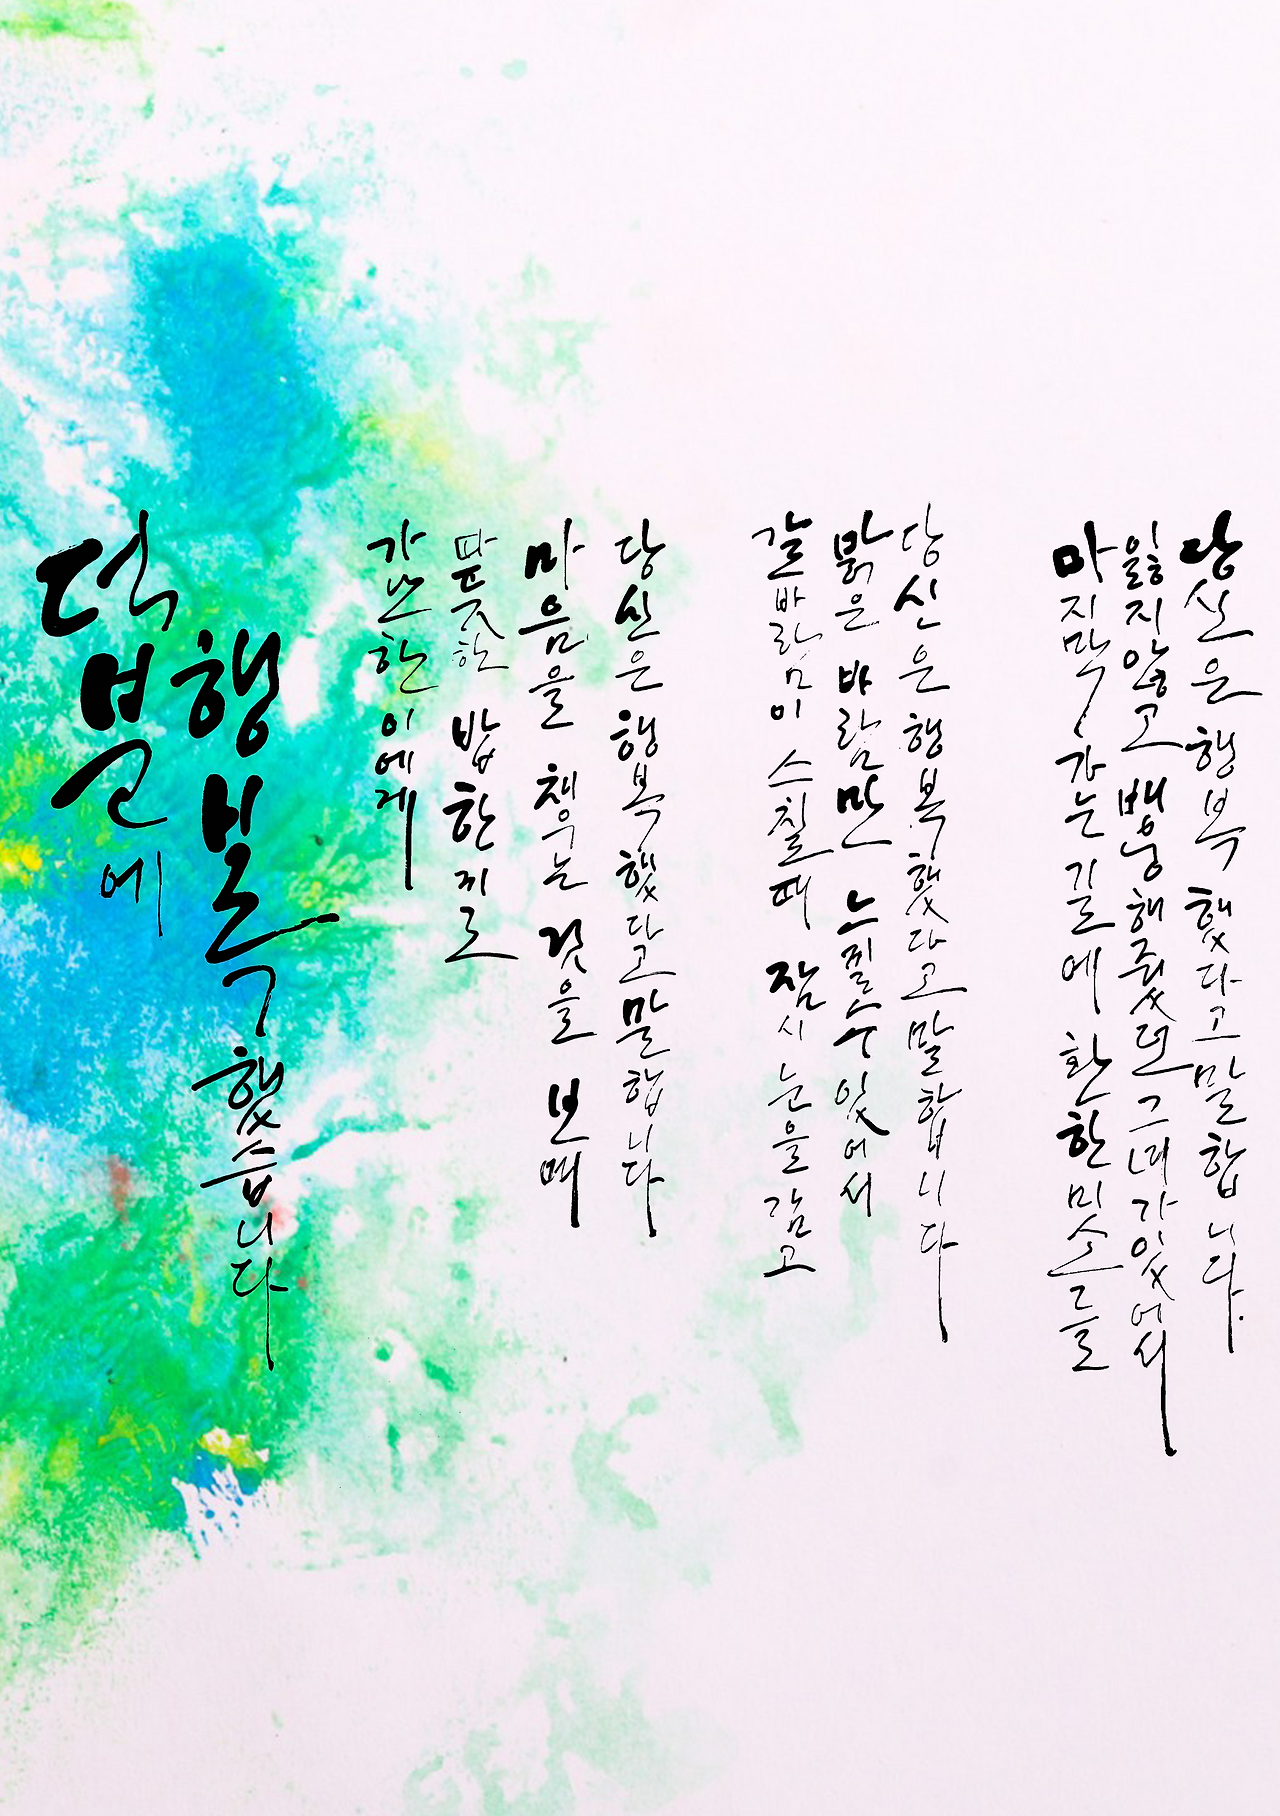 당신은 행복 했다고 말합니다.
잃지않고 배웅해줬던 그대가있어서
마지막 가는 길에 환한 미소를
당신은 행복했다고 말합니다
맑은 바람만 느낄수 있어서
갈바람이 스칠때 잠시 눈을 감고
당신은 행복했다고 말합니다
마음을 채우는 것을 보며
따뜻한 밥한끼로
가난한이에게
행복했습니다
덕분에